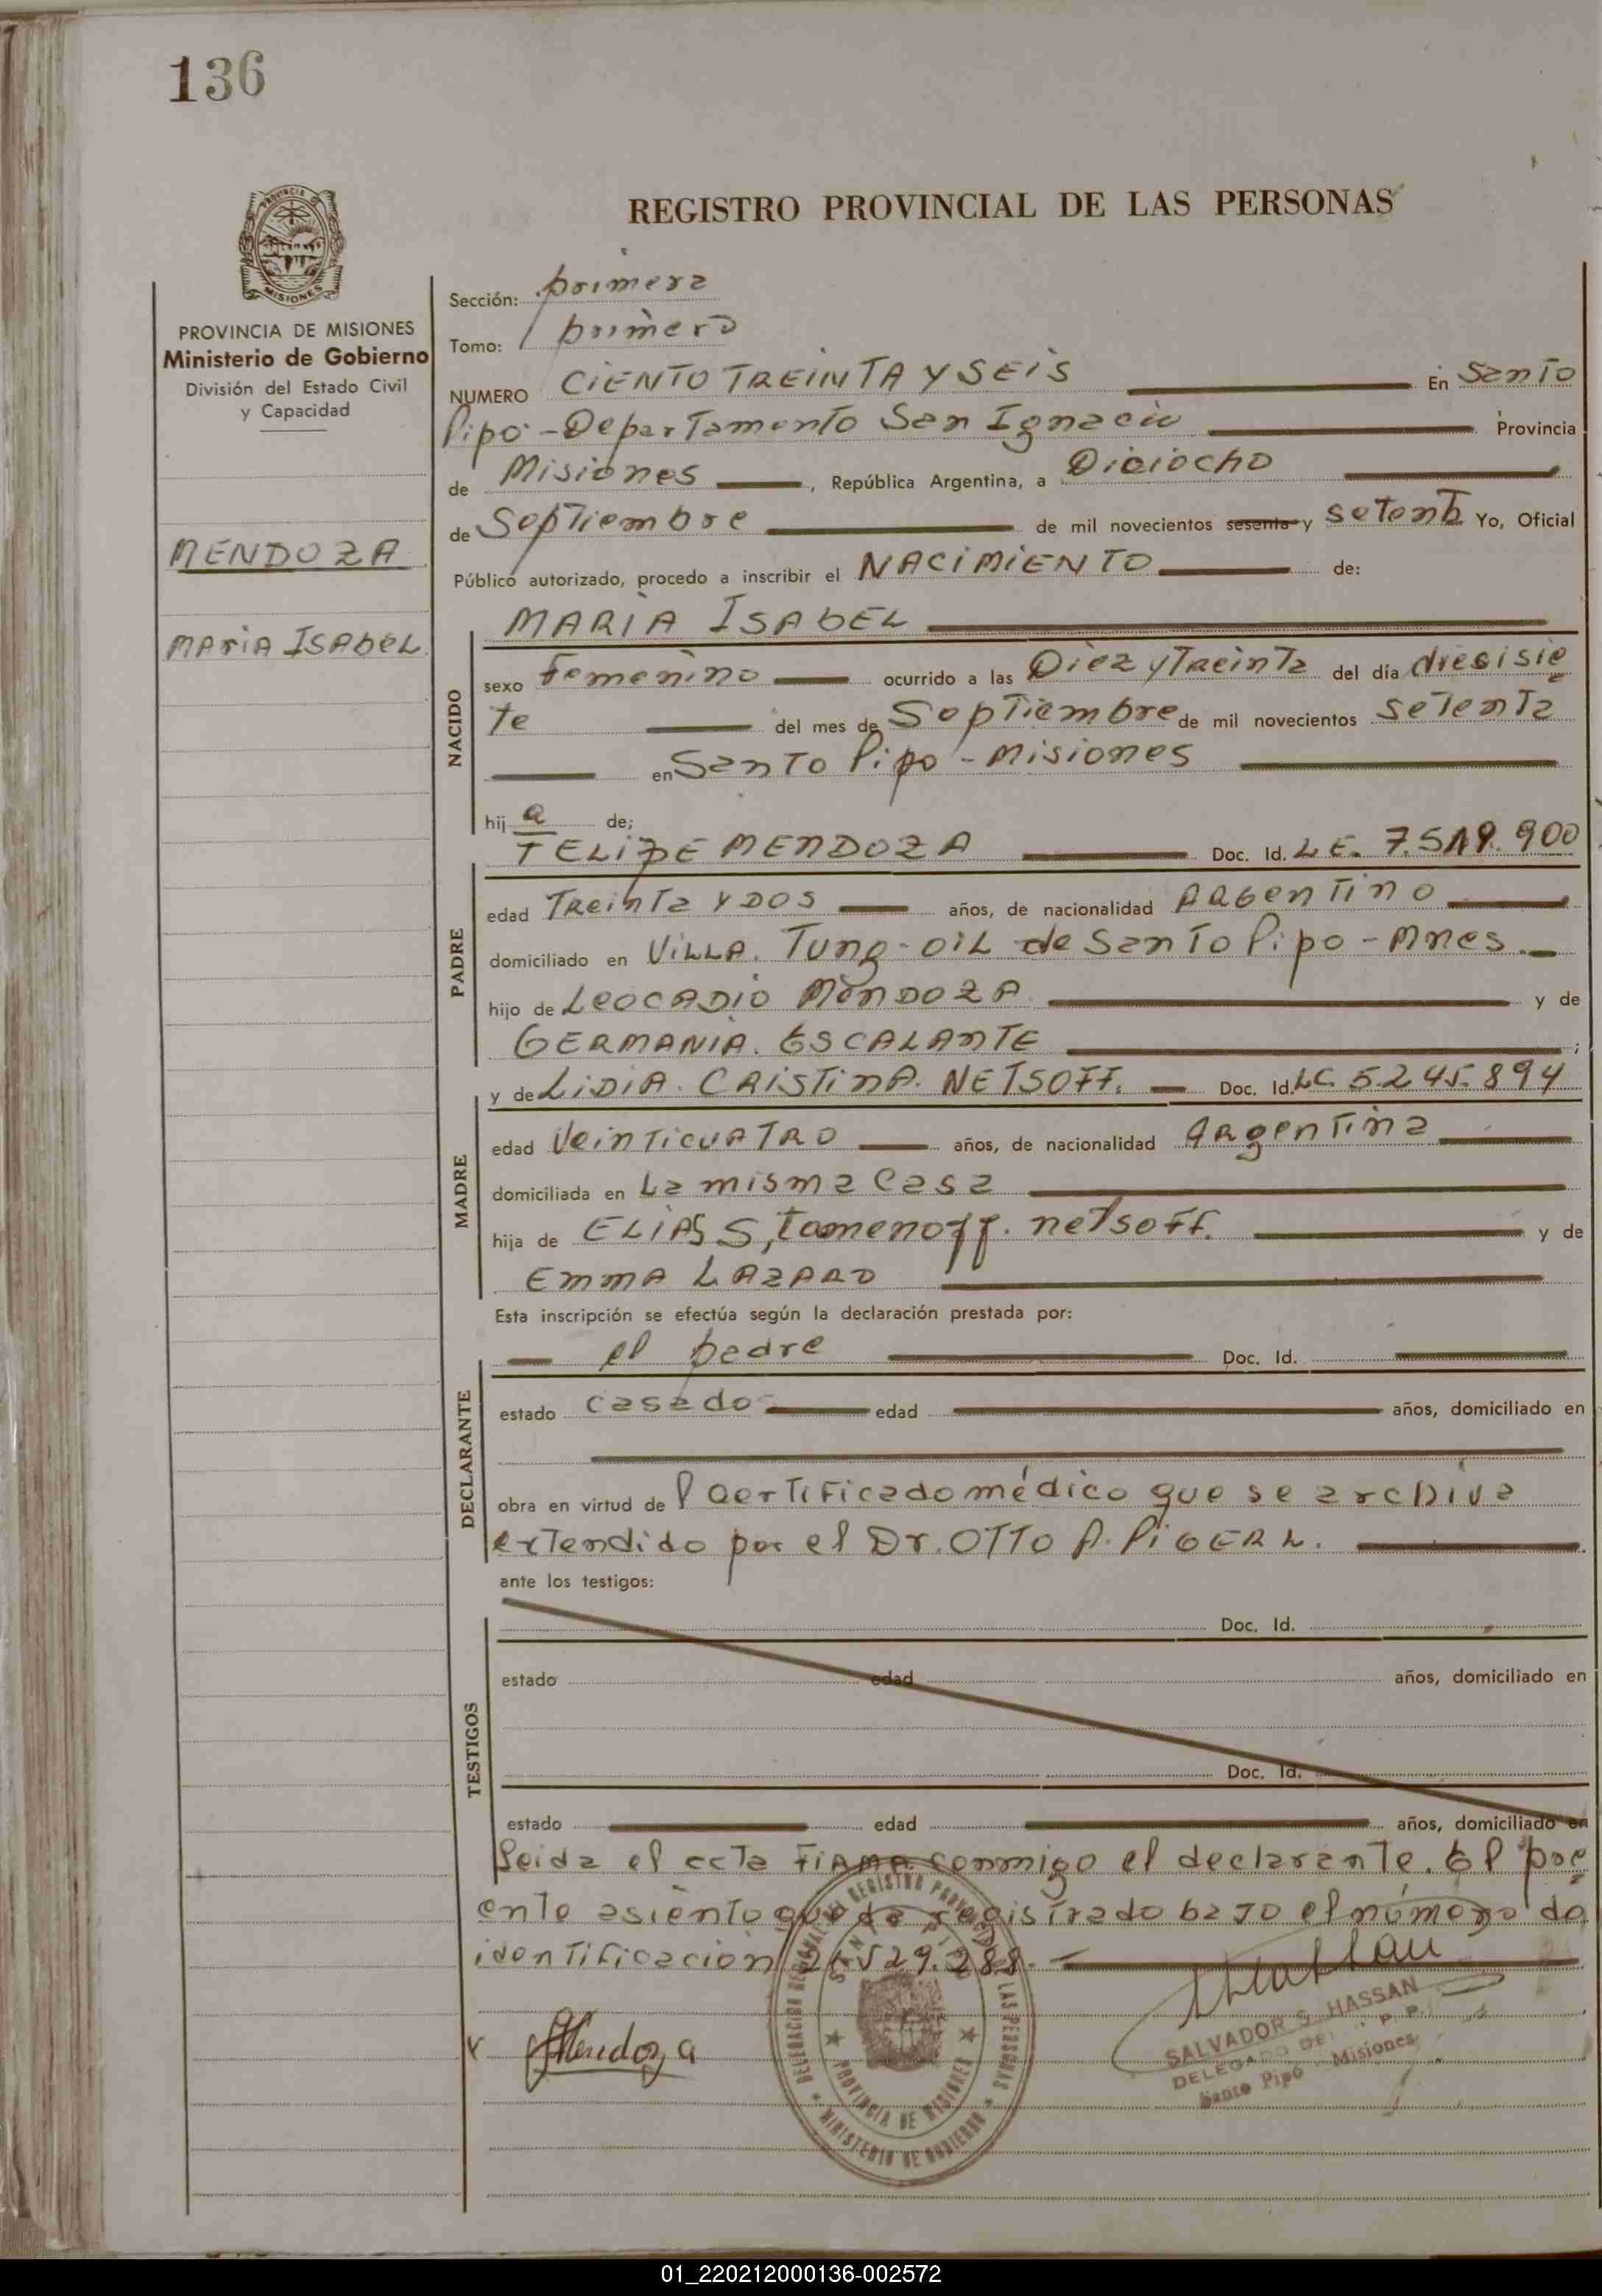 136
PROVINCIA
MISIONES
PROVINCIA DE MISIONES
Ministerio de Gobierno
División del Estado Civil
y Capacidad
MENDOZA
MARIA ISAbEL
REGISTRO PROVINCIAL DE LAS PERSONAS
Sección: primera
Tomo: primero
NUMERO CIENTO TREINTA Y SEIS En Santo
Pipó - Departamento San Ignacio Provincia
de Misiones, República Argentina, a Dieiocho
de Septiembre de mil novecientos sesenta y setenta Yo, Oficial
Público autorizado, procedo a inscribir el NACIMIENTO de:
MARIA ISAbEL
NACIDO
sexo Femenino ocurrido a las Diez y Treinta del día diesisie
te del mes de Septiembre de mil novecientos setenta
en Santo Pipo - Misiones
hij a de;
FELIPE MENDOZA Doc. Id. L.E. 900
PADRE
edad Treinta Y DOS años, de nacionalidad ARGenTino
domiciliado en VILLA. Tung-OIL de Santo Pipo - Mnes.
hijo de LEOCADIO MENDOZA y de
GERMANIA. ESCALANTE ;
y de LIDIA. CRISTINA. NETSOFF. Doc. Id. LC 5.245.894
MADRE
edad VeinTicuATRO años, de nacionalidad ARgenTina
domiciliada en La misma Casa
hija de ELIAS netsoff. y de
EMMA LAZARO
Esta inscripción se efectúa según la declaración prestada por:
el padre Doc. Id.
DECLARANTE
estado casado edad años, domiciliado en
obra en virtud de l certificado médico que se archiva
extendido por el Dr. OTTO A.
ante los testigos:
Doc. Id.
TESTIGOS
estado edad años, domiciliado en
Doc. Id.
estado edad años, domiciliado en
Leida el acta FIRMA conmigo el declarante. El pre
ente asiento queda registrado bajo el número de
identificación 29.288.
DELEGACION REGISTRO PROVINCIAL DE LAS PERSONAS
SANTO PIPO
PROVINCIA DE MISIONES
MINISTERIO DE GOBIERNO
Mendoza
SALVADOR S. HASSAN
DELEGADO DEL R. P. P.
Santo Pipó Misiones
01_220212000136-002572